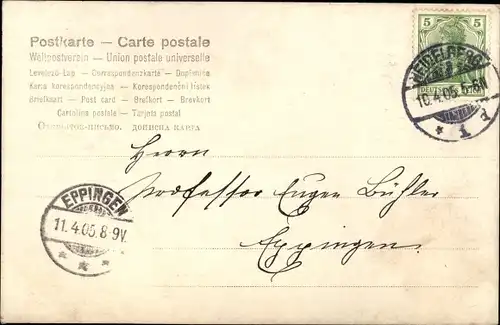 Postkarte — Carte postale
Weltpostverein — Union postale universelle
Levelező-Lap — Correspondenzkarte — Dopisnice
Karta korespondencyjna — Korespondenční lístek
Brevkaart — Post card — Brefkort — Brevkort
Cartolina postale — Tarjeta postal
Открытое письмо. ДОПИСНА КАРТА
5 5
HEIDELBERG
10.4.05. 8-9N
* 1 d
Herrn
Professor Eugen Bühler
Eppingen.
EPPINGEN
11.4.05.8-9V.
* * *